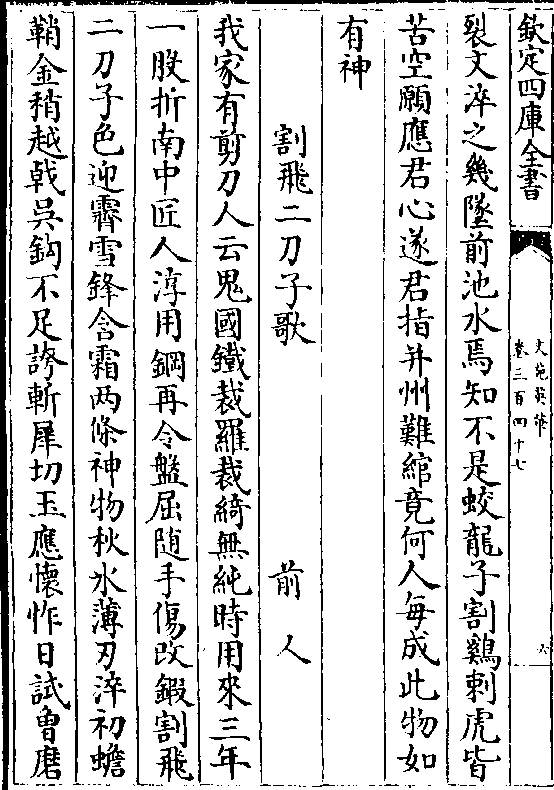 欽定四庫全書
文苑英華
卷三百四十七
六
裂文淬之幾墜前池水焉知不是蛟龍子割鷄刺虎皆
苦空願應君心遂君指并州難綰竟何人每成此物如
有神
割飛二刀子歌 前人
我家有剪刀人云鬼國鐵裁羅裁綺無純時用來三年
一股折南中匠人淳用鋼再令盤屈随手傷改鍜割飛
二刀子色迎霽雪鋒含霜两條神物秋氷薄刃淬初蟾
鞘金稍越㦸吳鈎不足誇斬犀切玉應懐怍日試曽磨